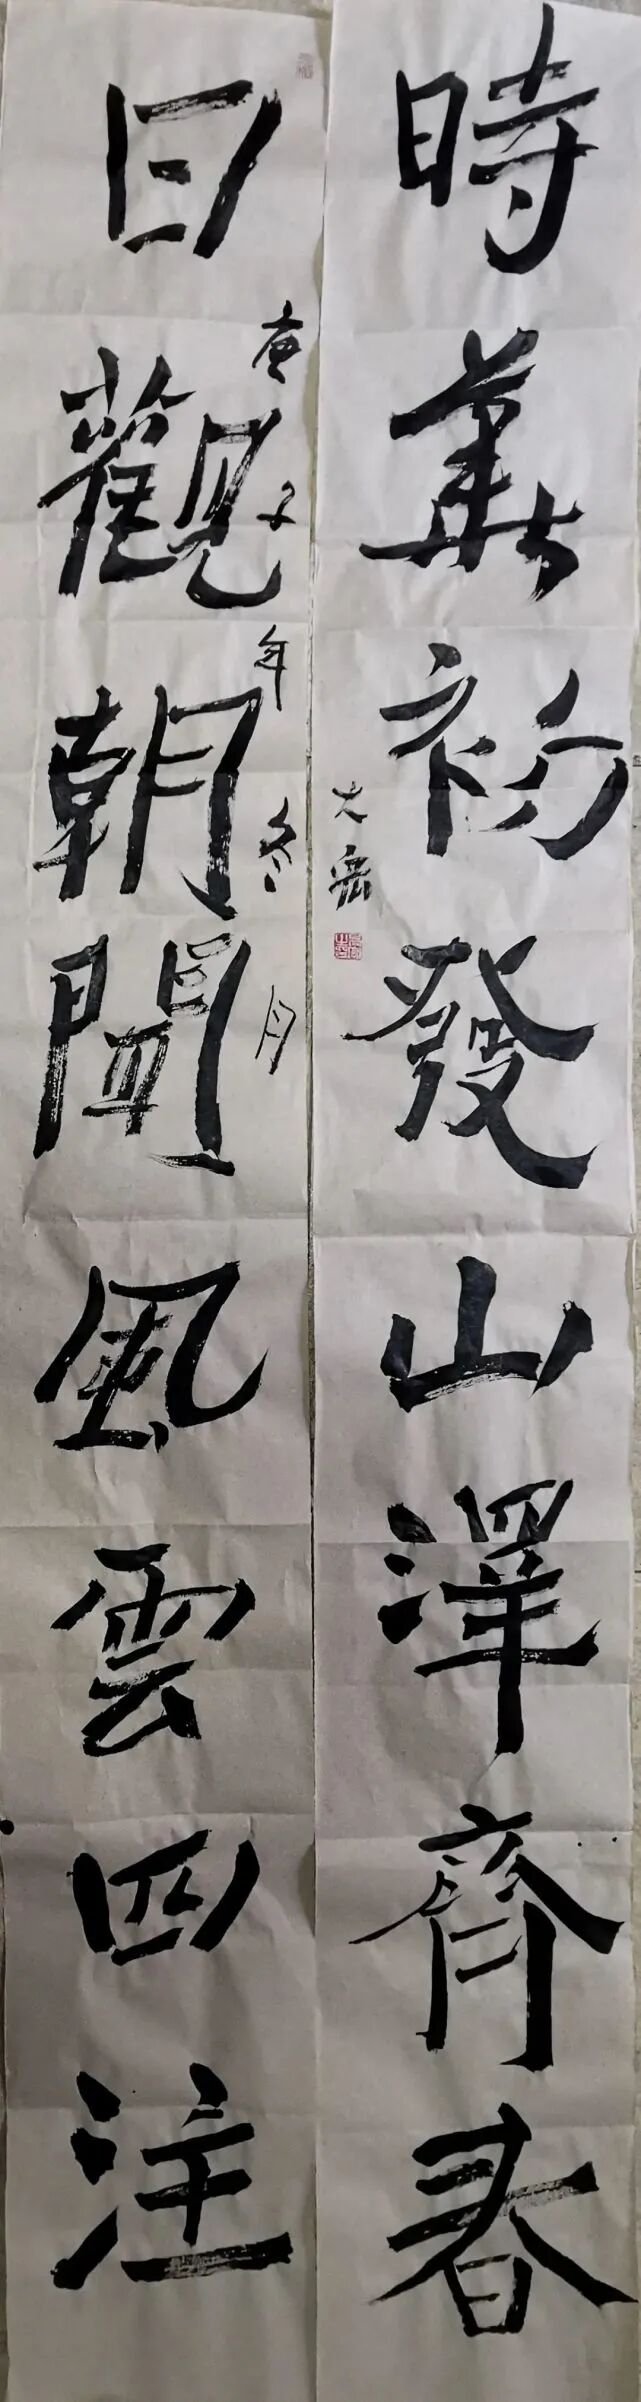 時華初發山澤齊春
日觀朝開風雲四注
庚子年冬月
大岳